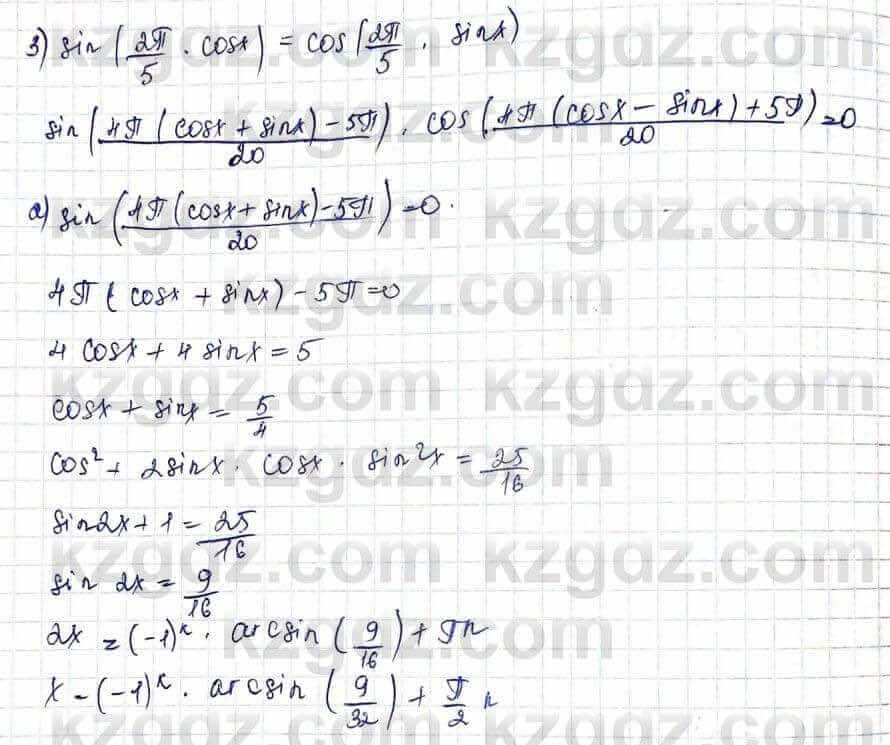 3) sin(2π/5 · cosx) = cos(2π/5 · sinx)
sin(4π(cosx + sinx) - 5π)/20) · cos(4π(cosx - sinx) + 5π)/20) = 0
a) sin(4π(cosx + sinx) - 5π)/20) = 0.
4π(cosx + sinx) - 5π = 0
4 cosx + 4 sinx = 5
cosx + sinx = 5/4
cos² + 2sinx · cosx · sin²x = 25/16
sin2x + 1 = 25/16
sin 2x = 9/16
2x = (-1)ᵏ · arcsin(9/16) + πn
x = (-1)ᵏ · arcsin(9/32) + π/2 n
kzgdz.com kzgdz.com
kzgdz.com
kzgdz.com kzgdz.com
kzgdz.com
kzgdz.com kzgdz.com
kzgdz.com
kzgdz.com kzgdz.com
kzgdz.com
kzgdz.com kzgdz.com